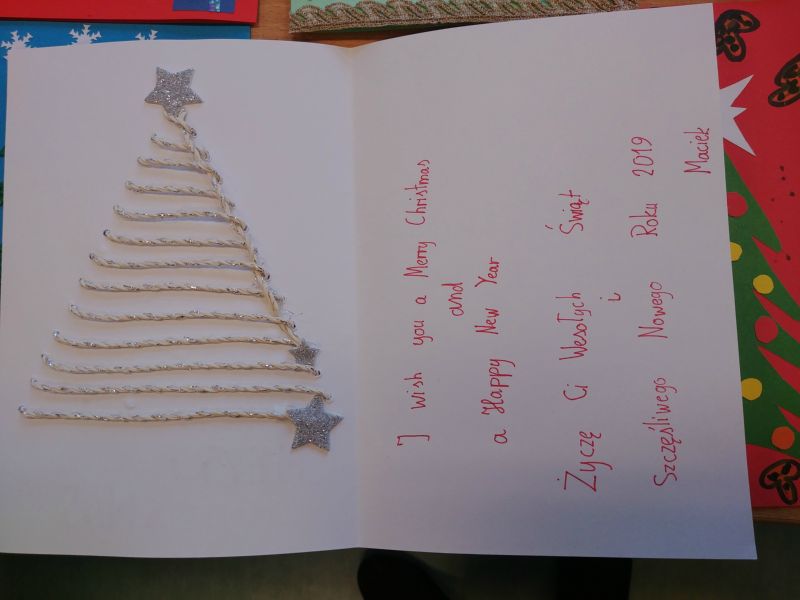 I wish you a Merry Christmas
and
a Happy New Year
Życzę Ci Wesołych Świąt
i
Szczęśliwego Nowego Roku 2019
Maciek